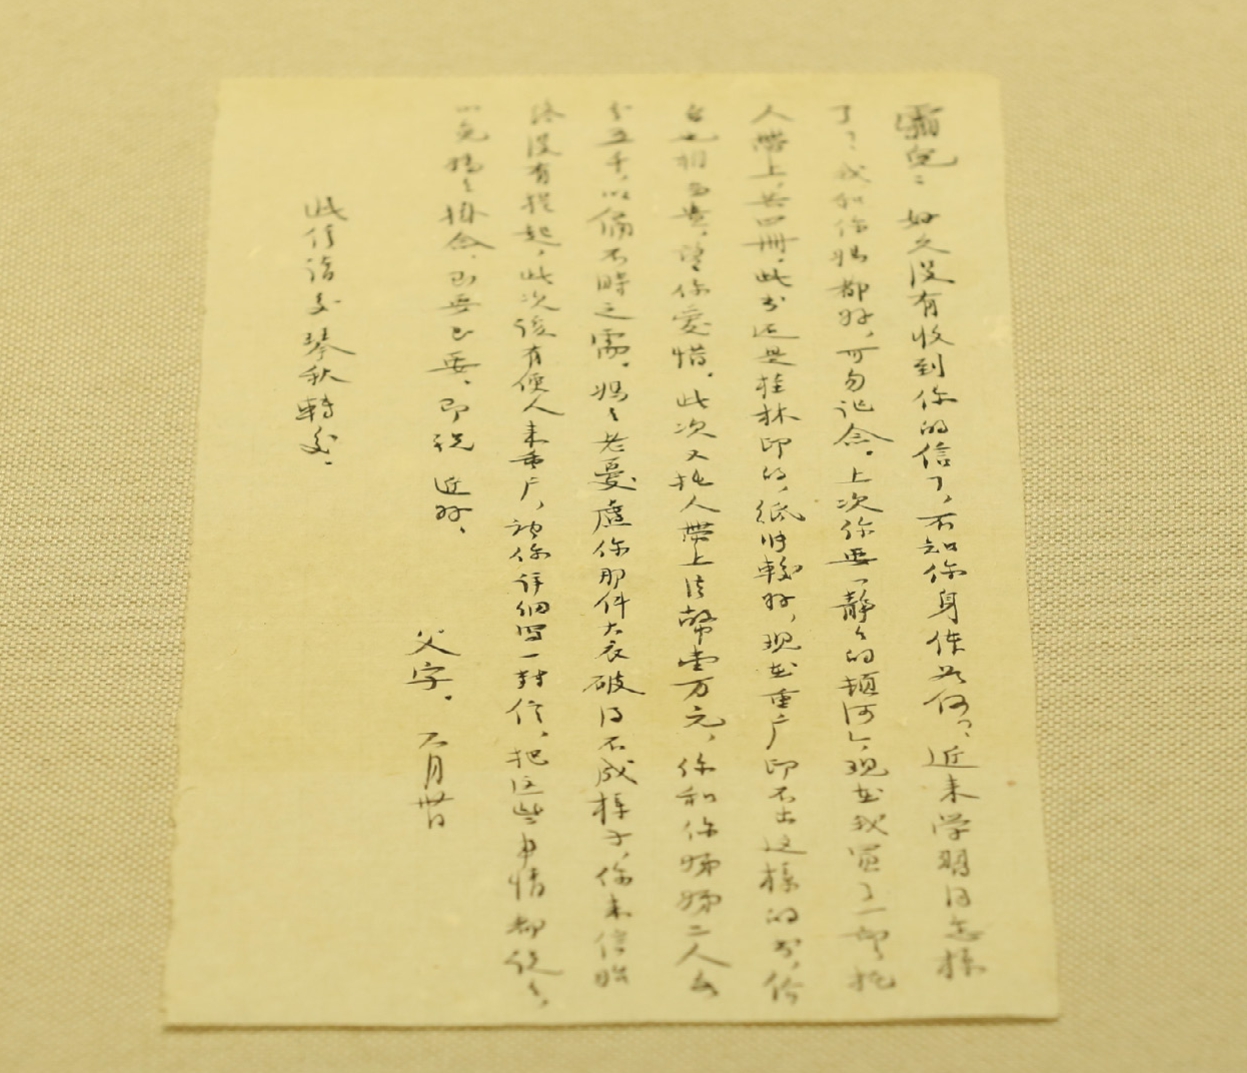 霜儿：好久没有收到你的信了，不知你身体如何？近来学习得怎样
了？我和你妈都好，可勿记念。上次你要「静静的顿河」，现在我买了一部，托
人带上，共四册，此书还是桂林印的，纸张较好，现在重庆印不出这样的书，价
钱也相当贵，望你爱惜。此次又托人带上法幣壹万元，你和你姊姊二人各
分五千，以备不时之需。妈妈老忧虑你那件大衣破得不成样子，你来信始
终没有提起，此次该有便人来重庆，请你详细写一封信，把这些事情都说说，
以免妈妈掛念，至要至要。即祝 近好。
父字。 六月廿日
此信请交琴秋轉交。